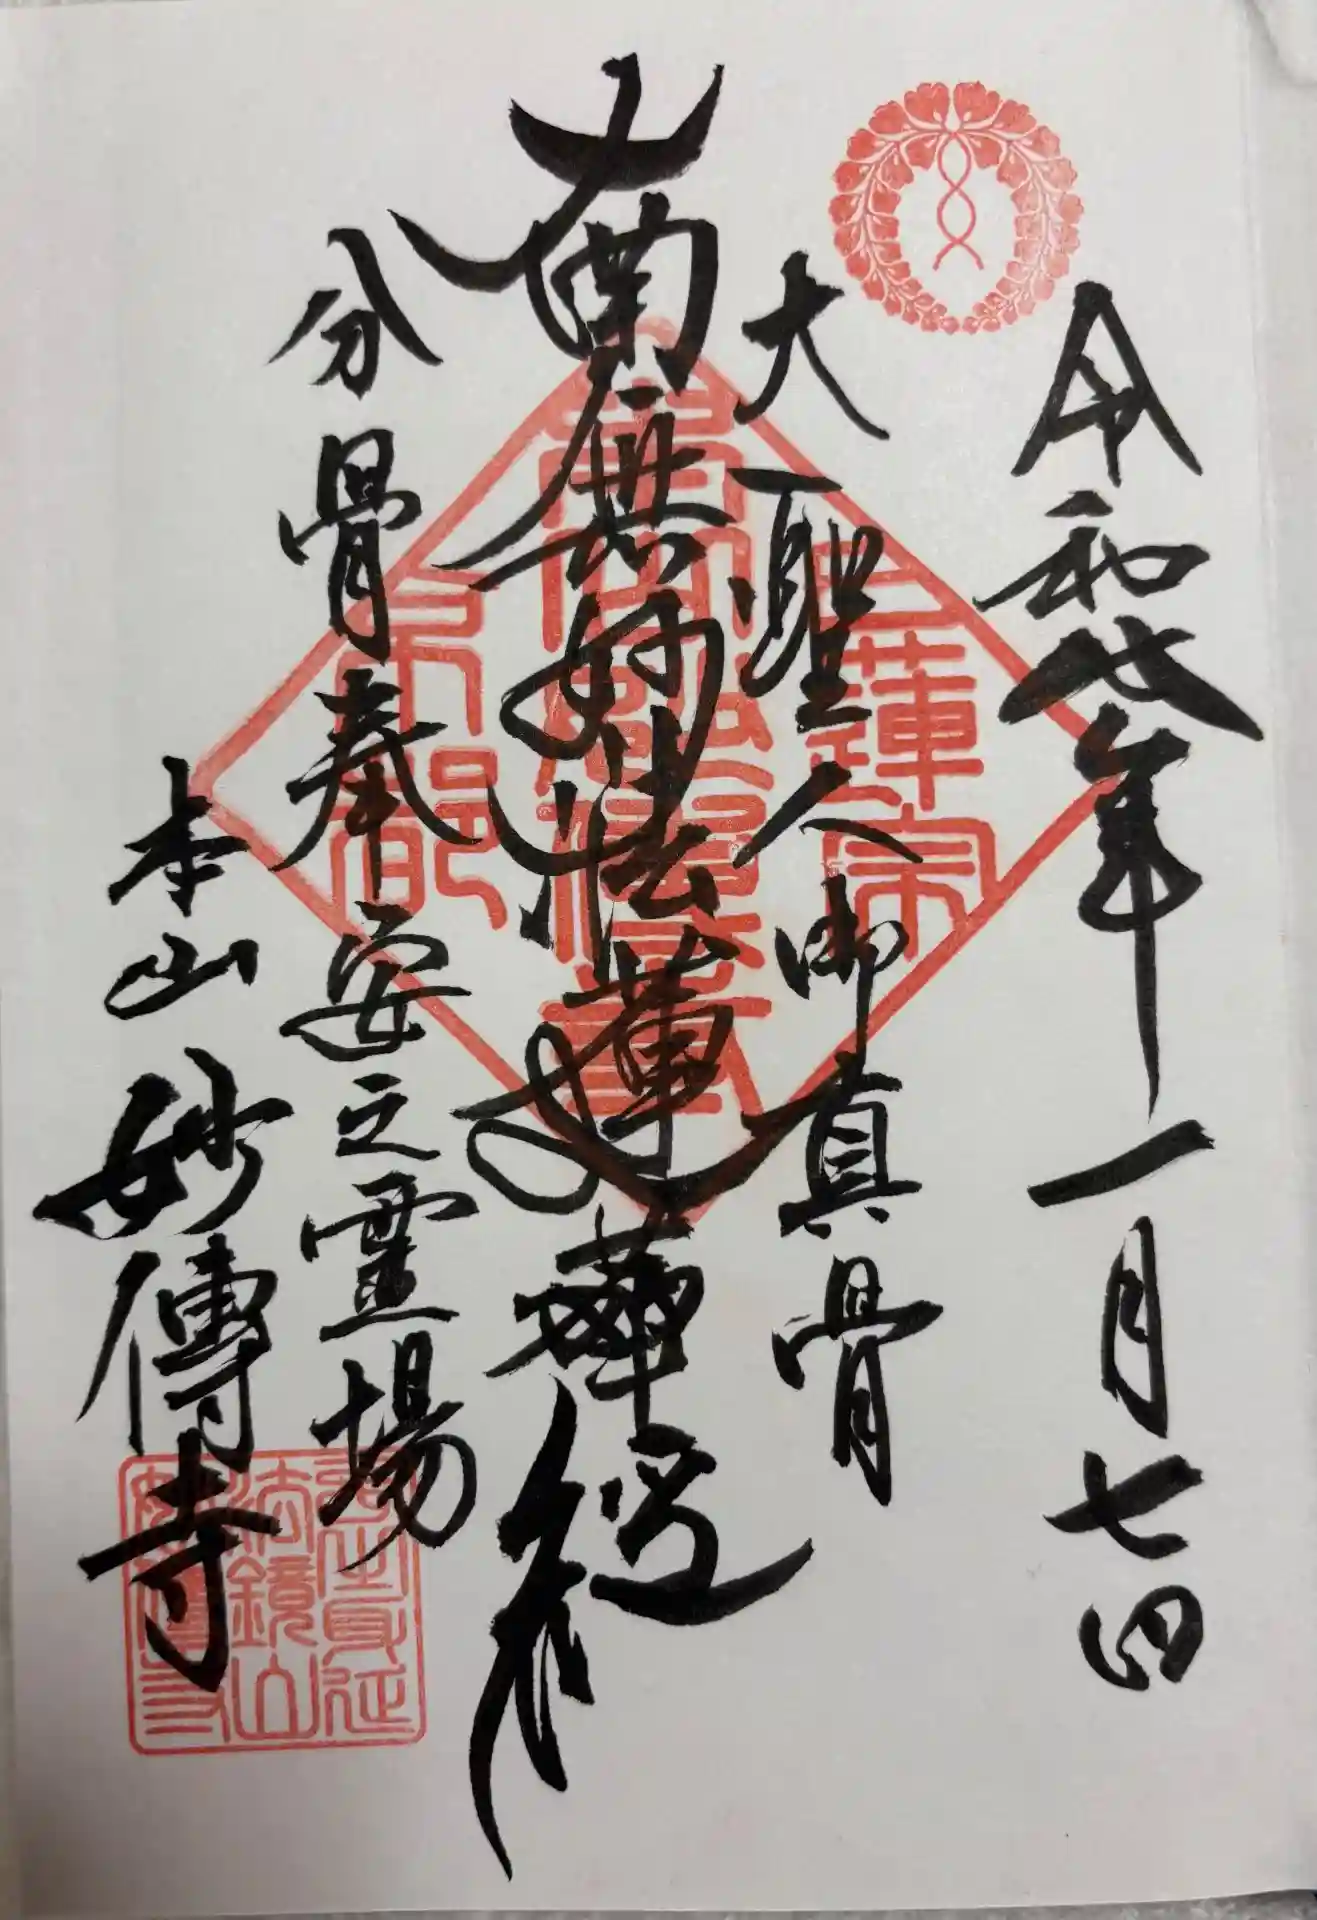 令和七年一月七日
大聖人御真骨
南無妙法蓮華經
分骨奉安之霊場
本山 妙傳寺
日蓮宗
京都
関西身延
法鏡山
妙傳寺